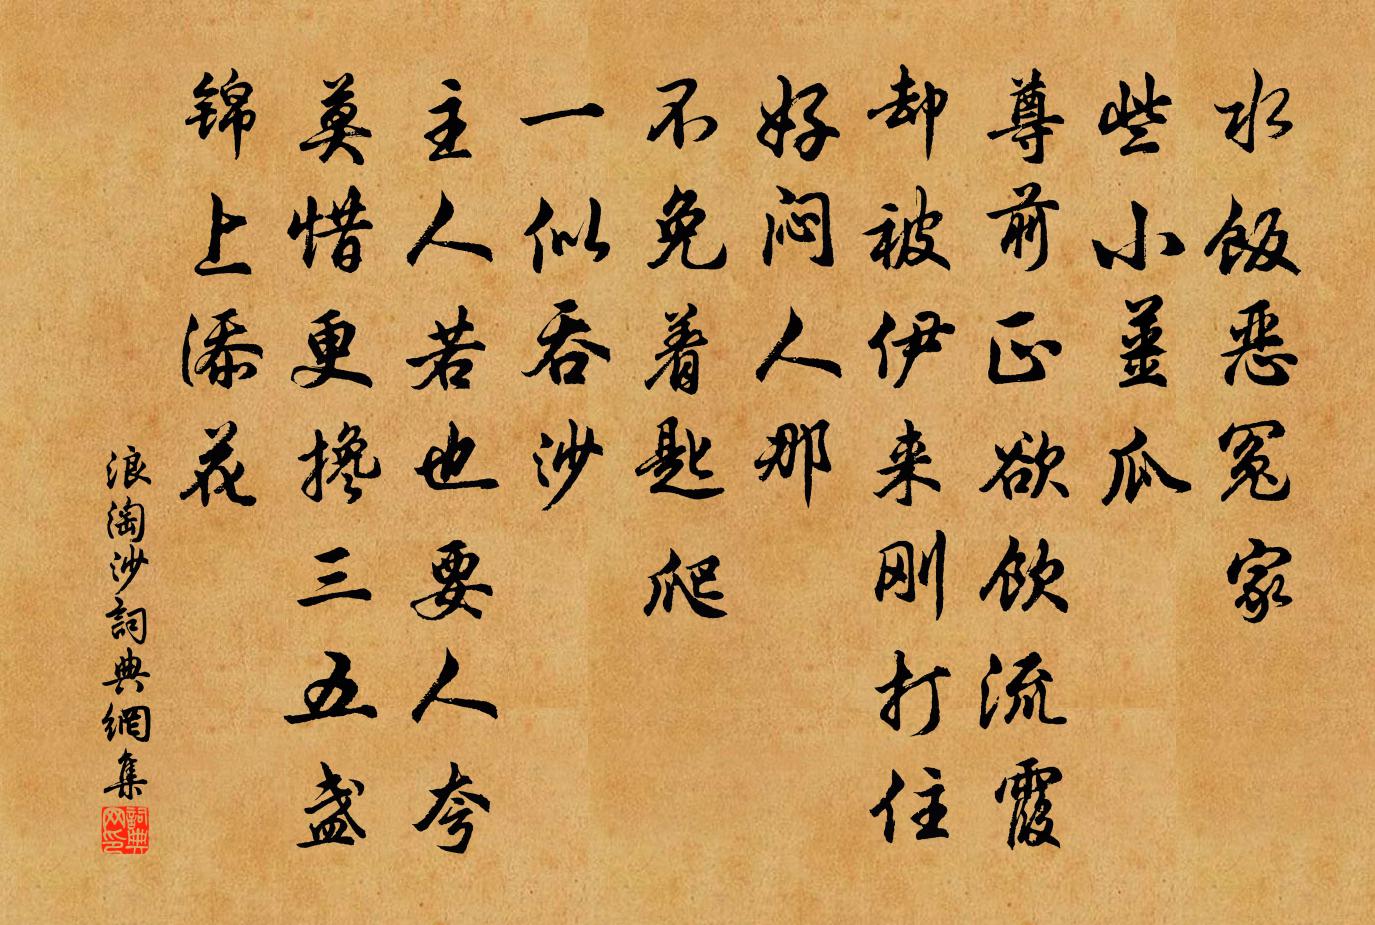 水饭恶冤家
些小薑瓜
尊前正欲饮流霞
却被伊来刚打住
好闷人那
不免着匙爬
一似吞沙
主人若也要人夸
莫惜更搀三五盏
锦上添花
浪淘沙詞典網集
詞典网印